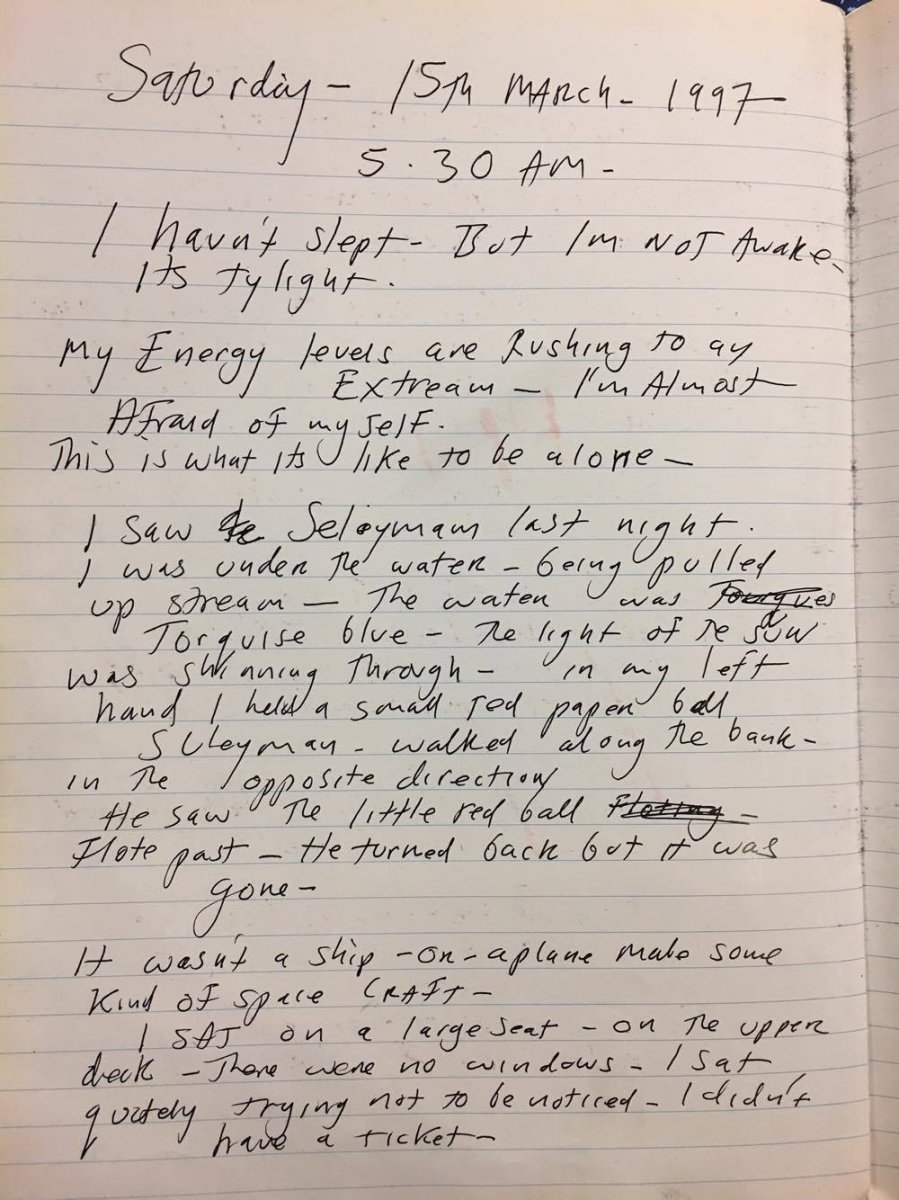 Saturday - 15TH MARCH - 1997
5.30 AM -
I havn't slept - But I'm NOT Awake -
Its tylight.
My Energy levels are Rushing to ay
Extream - I'm Almost
Afraid of myself.
This is what its like to be alone -
I saw Seloymam last night.
I was under the water - being pulled
up stream - The water was
Torquise blue - The light of the sun
was shinning through - in my left
hand I held a small red paper ball
Suleyman - walked along the bank -
in the opposite direction
He saw the little red ball Floting -
Flote past - He turned back but it was
gone -
It wasn't a ship - or - a plane make some
Kind of space CRAFT -
I SAT on a large seat - on the upper
deck - There were no windows - I sat
quietely trying not to be noticed - I didn't
have a ticket -